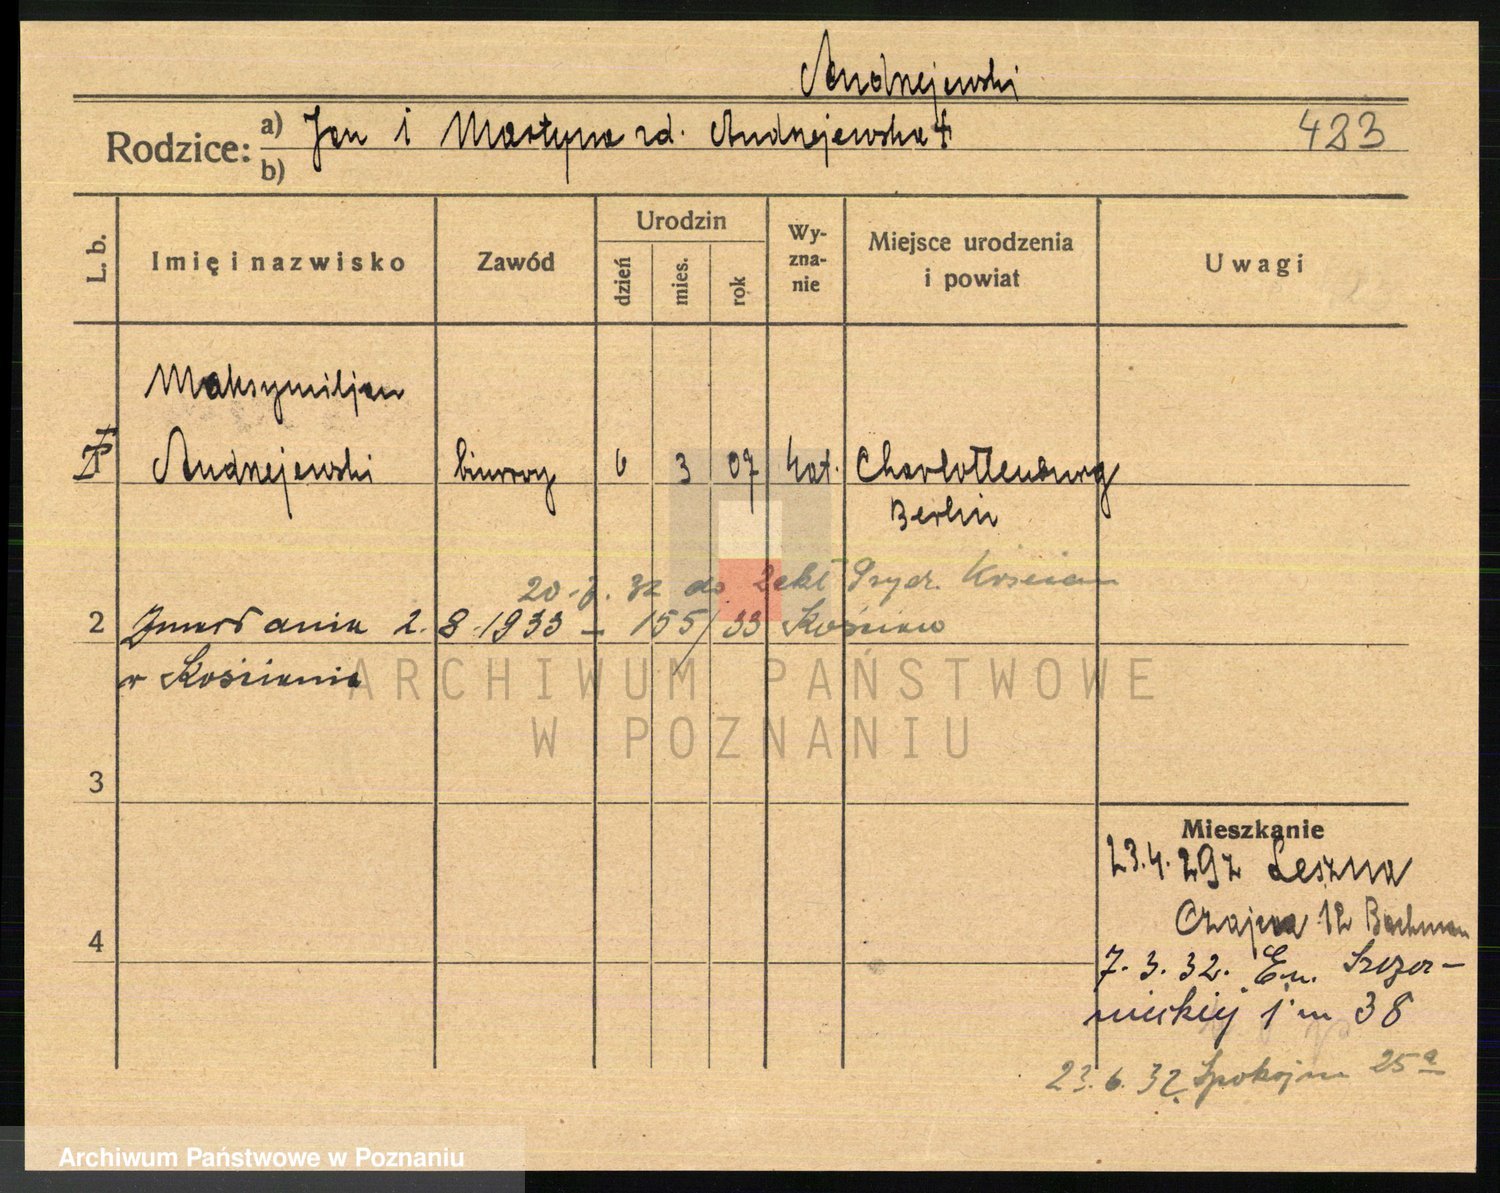 Andrzejewski
Rodzice: a) Jan i Martyna rd. Andrzejewska 423
b)
L. b. Imię i nazwisko Zawód Urodzin dzień mies. rok Wy-zna-nie Miejsce urodzenia i powiat Uwagi
Maksymiljan
Andrzejewski biurowy 6 3 07 kat. Charlottenburg
Berlin
20. 7. 32 do Kościan
2 Zmarł 2. 8. 1933 – 155/33 Kościan
w Kościanie
ARCHIWUM PAŃSTWOWE
W POZNANIU
3
Mieszkanie
23. 4. 29 z Leszna
Czajcza 12 Bachman
4
7. 3. 32. Em. Sczer-
nieckiej 1 m 38
23. 6. 32 Spokojna 25a
Archiwum Państwowe w Poznaniu